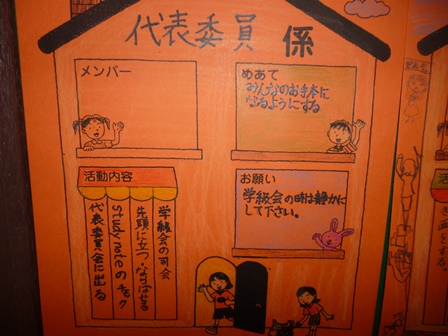 代表委員 係
メンバー
めあて
みんなのお手本に
なるようにする
活動内容
学級会の司会
先頭に立つ・ならばせる
study noteのチェック
代表委員会に出る
お願い
学級会の時は静かに
して下さい。